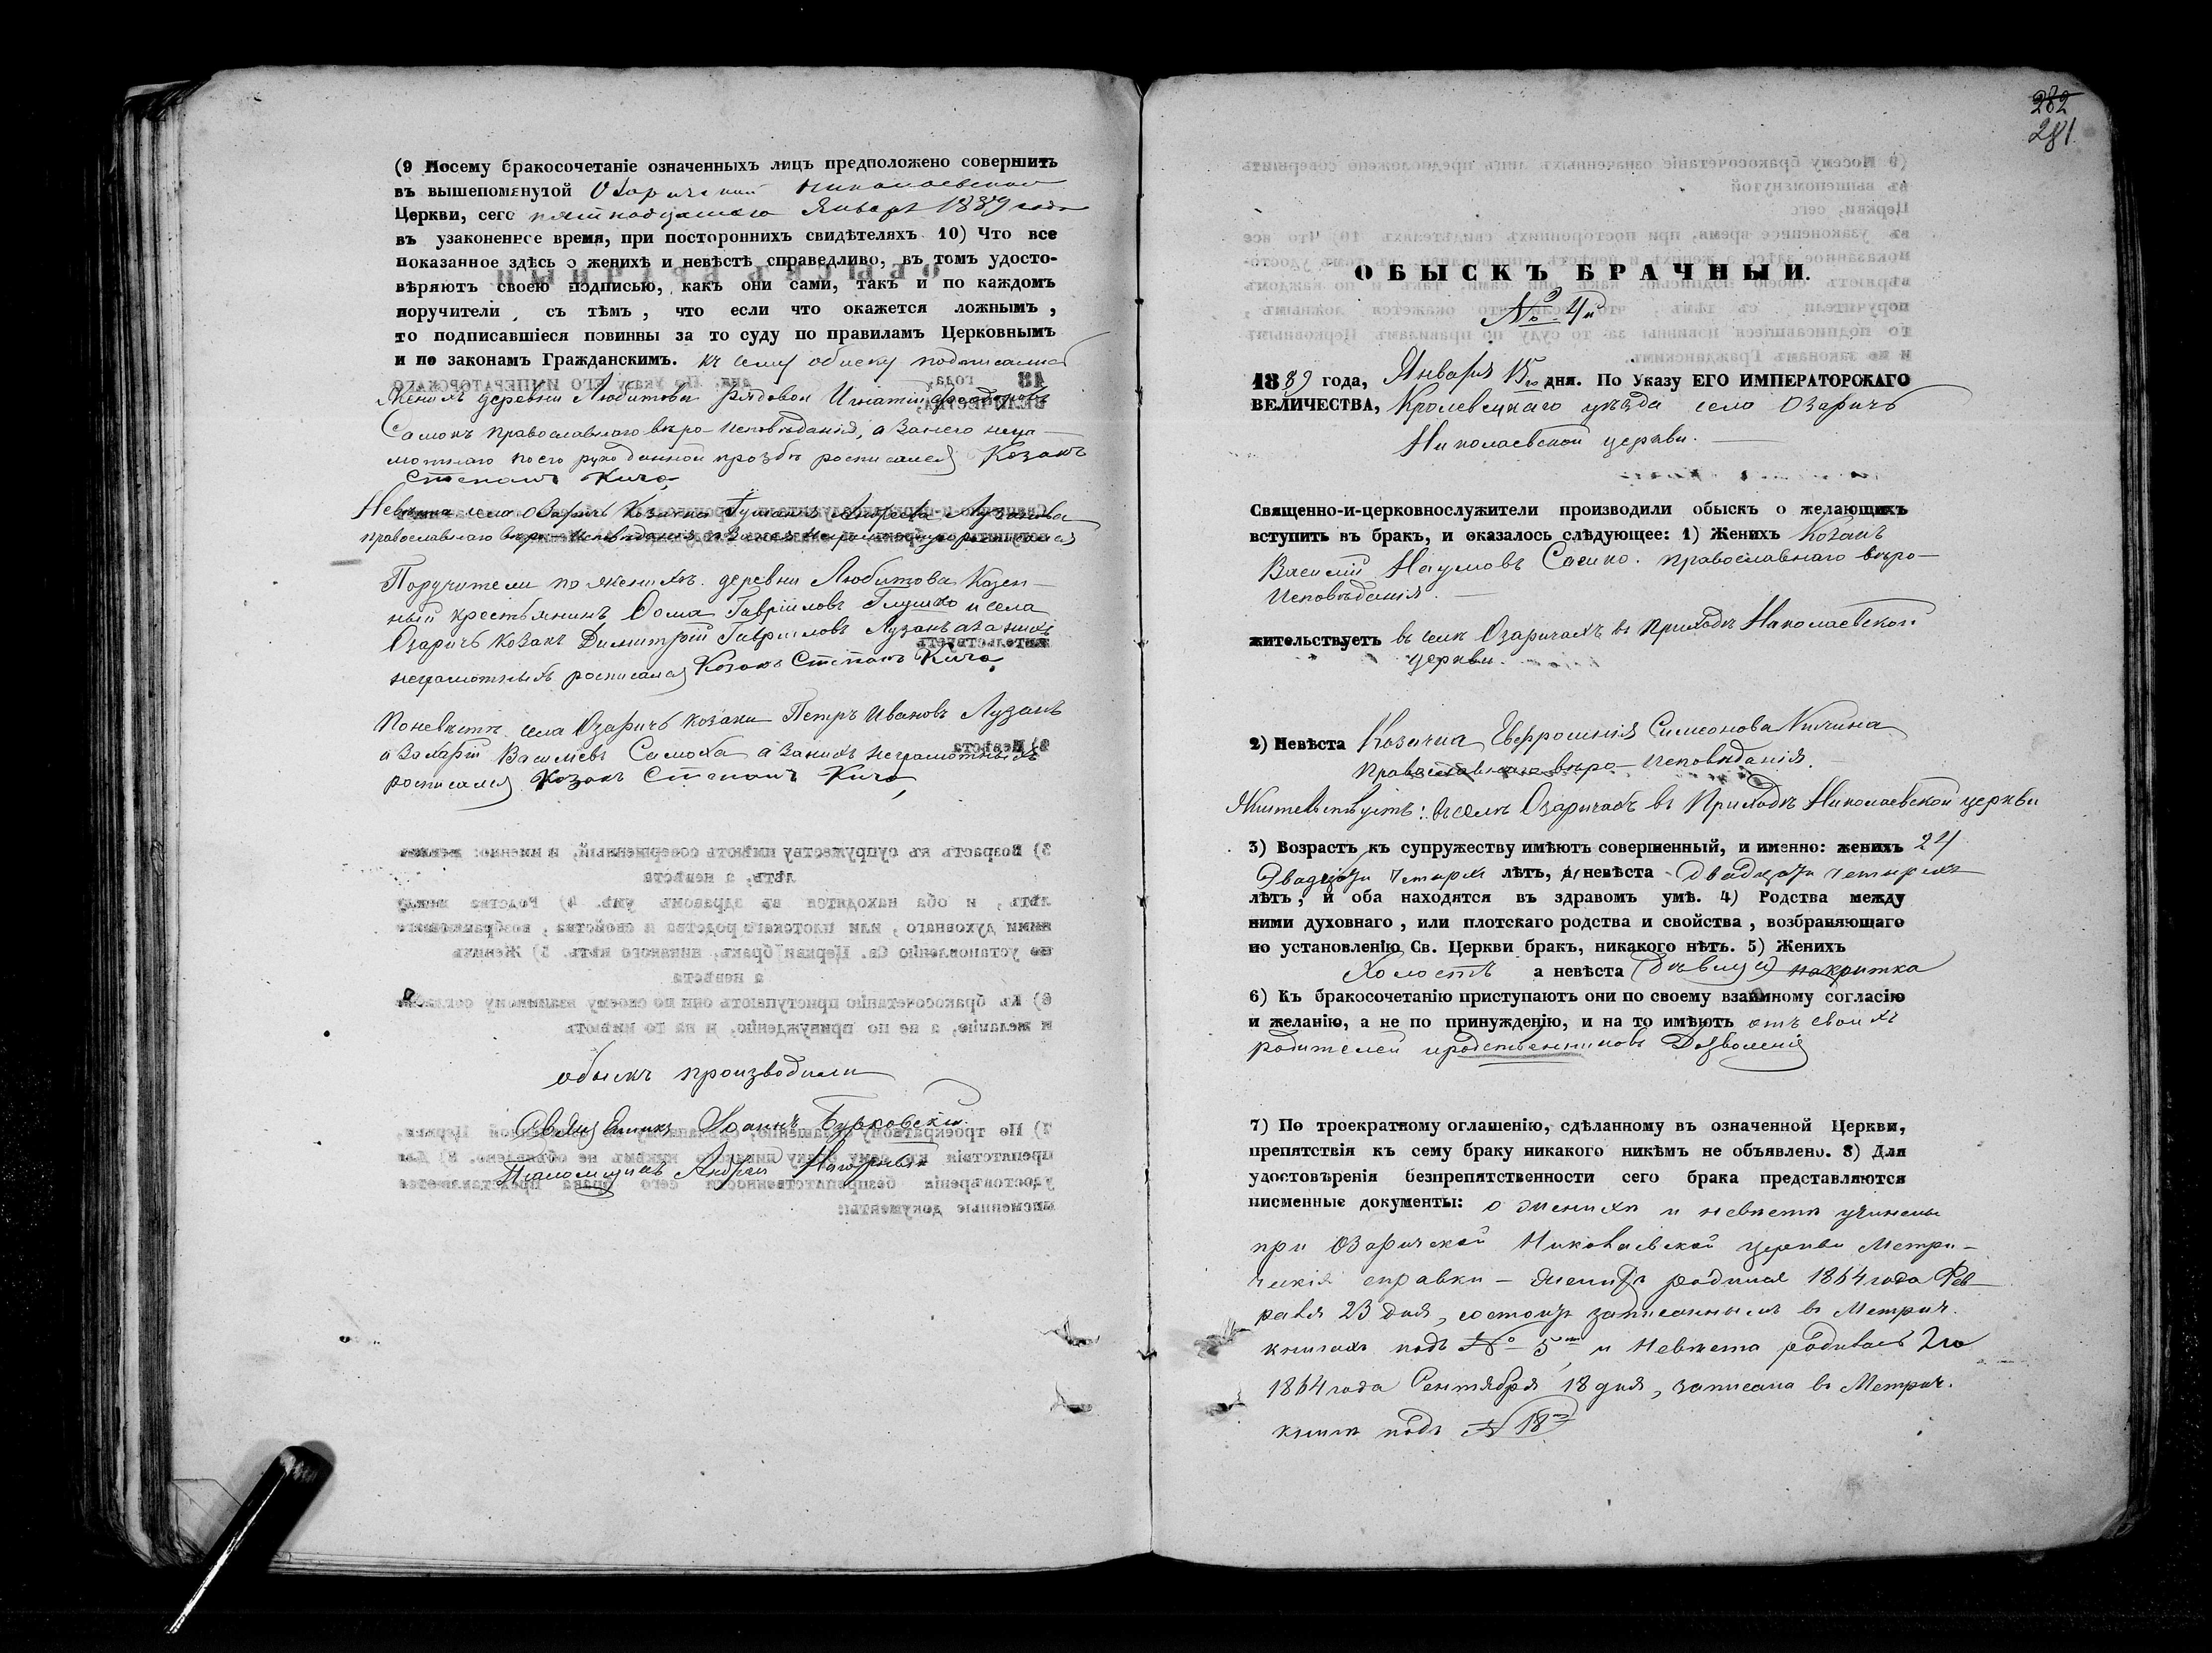 (9 Посему бракосочетаніе означенныхъ лицъ предположено совершить
въ вышепомянутой Озаричской Николаевской
Церкви, сего пятнадцатаго Января 1889 года
въ узаконенное время, при постороннихъ свидѣтеляхъ 10) Что все
показанное здѣсь о женихѣ и невѣстѣ справедливо, въ томъ удосто-
вѣряютъ своею подписью, какъ они сами, такъ и по каждомъ
поручители, съ тѣмъ, что если что окажется ложнымъ,
то подписавшіеся повинны за то суду по правиламъ Церковнымъ
и по законамъ Гражданскимъ. къ сему обыску подписались
Женихъ деревни Любитова рядовой Игнатій Феодоровъ
Самокъ православнаго вѣро-исповѣданія, а за него негра-
мотнаго по его рукоданной прозбѣ росписался Козакъ
Степанъ Кича
Невѣста села Озаричъ Козачка Андреева Лузанова
православнаго вѣро-исповѣданія, а за нея неграмотную росписался
Поручители по женихѣ деревни Любитова Казен-
ный крестьянинъ Фома Гавріиловъ Глушко и села
Озаричъ козакъ Димитрій Гавриловъ Лузанъ а за нихъ
неграмотныхъ росписался Козакъ Степанъ Кича
По невѣстѣ села Озаричъ козаки Петръ Ивановъ Лузанъ
а Захарій Васильевъ Самоха а за нихъ неграмотныхъ
росписался Козакъ Степанъ Кича
обыскъ производили
Священникъ Іоаннъ Бурковскій
Псаломщикъ Андрей Нагорный
282
281
ОБЫСКЪ БРАЧНЫЙ.
№ 4й
1889 года, Января 15го дня. По Указу ЕГО ИМПЕРАТОРСКАГО
ВЕЛИЧЕСТВА, Кролевецкаго уѣзда село Озаричъ
Николаевской церкви.
Священно-и-церковнослужители производили обыскъ о желающихъ
вступить въ бракъ, и оказалось слѣдующее: 1) Женихъ Козакъ
Василій Наумовъ Сашко. православнаго вѣро-
Исповѣданія.
жительствуетъ въ селѣ Озаричахъ въ приходѣ Николаевской
церкви.
2) Невѣста Козачка Евфросинія Симеонова Кичина
Православнаго вѣро-исповѣданія.
Жительствуетъ: въ селѣ Озаричахъ въ Приходѣ Николаевской церкви
3) Возрастъ къ супружеству имѣютъ совершенный, и именно: женихъ 24
Двадцати четырех лѣтъ, а невѣста двадцати четырехъ
лѣтъ, и оба находятся въ здравомъ умѣ. 4) Родства между
ними духовнаго, или плотскаго родства и свойства, возбраняющаго
по установленію Св. Церкви бракъ, никакого нѣтъ. 5) Женихъ
Холостъ а невѣста (дѣвица) накритка
6) Къ бракосочетанію приступаютъ они по своему взаимному согласію
и желанію, а не по принужденію, и на то имѣютъ отъ своихъ
родителей и родственниковъ Дозволеніе
7) По троекратному оглашенію, сдѣланному въ означенной Церкви,
препятствія къ сему браку никакого никѣмъ не объявлено. 8) Для
удостовѣренія безпрепятственности сего брака представляются
письменные документы: о женихѣ и невѣстѣ учинены
при Озаричской Николаевской церкви Метри-
ческія справки - женихъ родился 1864 года Фев-
раля 23 дня, состоитъ записаннымъ въ Метрич.
книгахъ подъ № 5мъ, и Невѣста родилась
1864 года Сентября 18 дня, записана въ Метрич.
книгѣ подъ № 18мъ